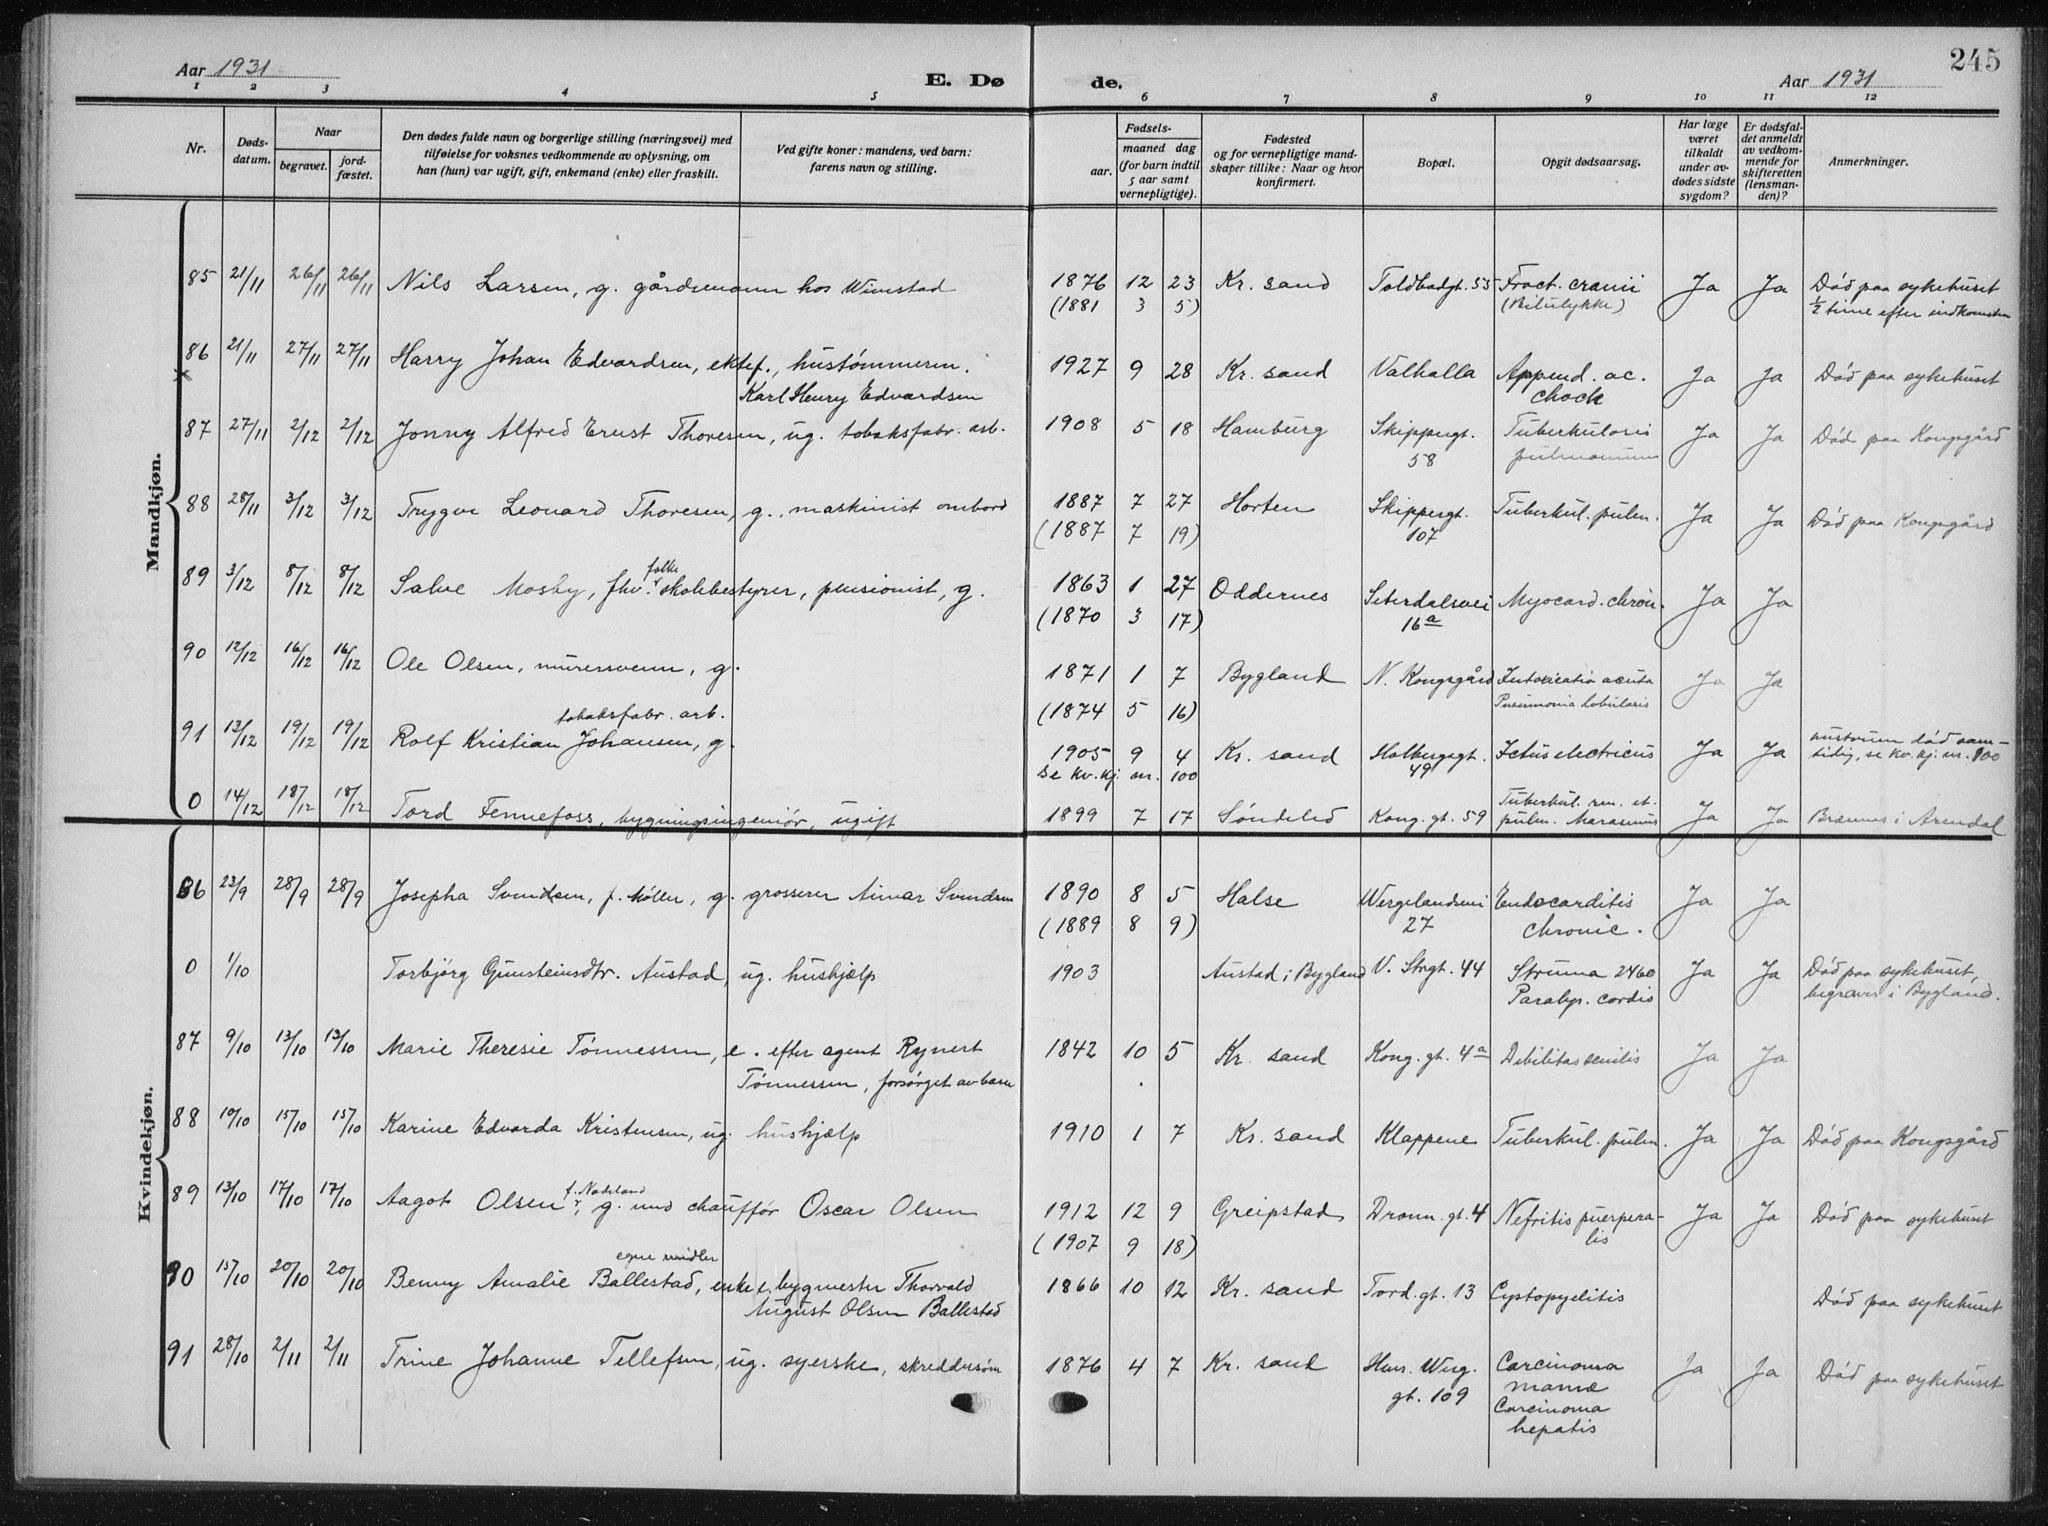 245
Aar 1931
E. Døde.
Aar 1931
1 2 3 4 5 6 7 8 9 10 11 12
Nr.
Døds-
datum.
Naar
begravet.
jord-
fæstet.
Den dødes fulde navn og borgerlige stilling (næringsvei) med
tilføielse for voksnes vedkommende av oplysning, om
han (hun) var ugift, gift, enkemand (enke) eller fraskilt.
Ved gifte koner: mandens, ved barn:
farens navn og stilling.
aar.
Fødsels-
maaned dag
(for barn indtil
5 aar samt
vernepligtige).
Fødested
og for vernepligtige mand-
skaper tillike: Naar og hvor
konfirmert.
Bopæl.
Opgit dødsaarsag.
Har læge
været
tilkaldt
under av-
dødes sidste
sygdom?
Er dødsfal-
det anmeldt
av vedkom-
mende for
skifteretten
(lensman-
den)?
Anmerkninger.
Mandkjøn.
85 21/11 26/11 26/11 Nils Larsen, g. gårdsmann hos Wimstad 1876 12 23 Kr. sand Toldbodgt. 55 Fract. cranii Ja Ja Død paa sykehuset
(1881 3 5) (Bilulykke) 1/2 time efter indkomsten
86 21/11 27/11 27/11 Harry Johan Edvardsen, ektef., hustømmerm. 1927 9 28 Kr. sand Valhalla Append. ac. Ja Ja Død paa sykehuset
x Karl Henry Edvardsen chock
87 27/11 2/12 2/12 Jonny Alfred Ernst Thoresen, ug. tobaksfabr. arb. 1908 5 18 Hamburg Skippergt. Tuberkulosis Ja Ja Død paa Kongsgård
58 pulmonum
88 28/11 3/12 3/12 Trygve Leonard Thoresen, g. maskinist ombord 1887 7 27 Horten Skippergt. Tuberkul. pulm. Ja Ja Død paa Kongsgård
(1887 7 19) 107
folke
89 3/12 8/12 8/12 Salve Mosby, fhv. skolebestyrer, pensionist, g. 1863 1 27 Oddernes Seterdalsvei Myocard. chron. Ja Ja
(1870 3 17) 16a
90 12/12 16/12 16/12 Ole Olsen, murersvenn, g. 1871 1 7 Bygland N. Kongsgård Intoxicatio acuta Ja Ja
(1874 5 16) Pneumonia lobularis
tobaksfabr. arb.
91 13/12 19/12 19/12 Rolf Kristian Johansen, g. 1905 9 4 Kr. sand Holbergsgt. Ictus electricus Ja Ja hustruen død sam-
se kv. kj. nr. 100 49 tidig, se kv. kj. nr. 100
0 14/12 18/12 18/12 Tord Fennefoss, bygningsingeniør, ugift 1899 7 17 Søndeled Kong. gt. 59 Tuberkul. ren. et. Ja Ja Brennes i Arendal
pulm. Marasmus
Kvindekjøn.
86 23/9 28/9 28/9 Josepha Svendsen, f. Møller, g. grosserer Aimar Svendsen 1890 8 5 Halse Wergelandsvei Endocarditis Ja Ja
(1889 8 9) 27 chronic.
0 1/10 Torbjørg Gunsteinsdtr. Austad, ug. hushjælp 1903 Austad i Bygland V. Strgt. 44 Struma 2460 Ja Ja Død paa sykehuset,
Paralys. cordis begraves i Bygland.
87 9/10 13/10 13/10 Marie Theresie Tønnessen, e. efter agent Rynert 1842 10 5 Kr. sand Kong. gt. 4a Debilitas senilis Ja Ja
Tønnessen, forsørget av barn
88 10/10 15/10 15/10 Karine Edvarda Kristensen, ug. hushjælp 1910 1 7 Kr. sand Klappene Tuberkul. pulm. Ja Ja Død paa Kongsgård
f. Nodeland
89 13/10 17/10 17/10 Aagot Olsen, g. med chauffør Oscar Olsen 1912 12 9 Greipstad Dronn. gt. 4 Nefritis puerpera- Ja Ja Død paa sykehuset
(1907 9 18) lis
egne midler
90 15/10 20/10 20/10 Benny Amalie Ballestad, enke e. bygmester Thorvald 1866 10 12 Kr. sand Tord. gt. 13 Cystopyelitis Død paa sykehuset
August Olsen Ballestad
91 28/10 2/11 2/11 Trine Johanne Tellefsen, ug. syerske, skreddersøm 1876 4 7 Kr. sand Henr. Werg. Carcinoma Ja Ja Død paa sykehuset
gt. 109 mamæ
Carcinoma
hepatis